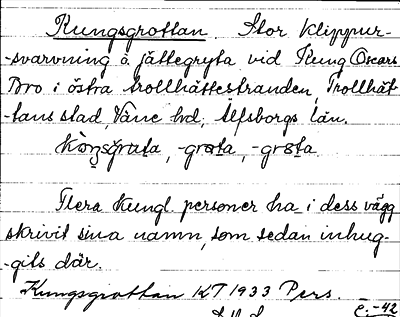 Kungsgrottan. Stor klippur-
-svarvning å jättegryta vid Kung Oscars
Bro i östra trollhättestranden, Trollhät-
-tans stad, Väne hd, Älfsborgs län.
Flera kungl. personer ha i dess vägg
skrivit sina namn, som sedan inhug-
-gits där.
Kungsgrottan KT 1933 Pers.
C.-42